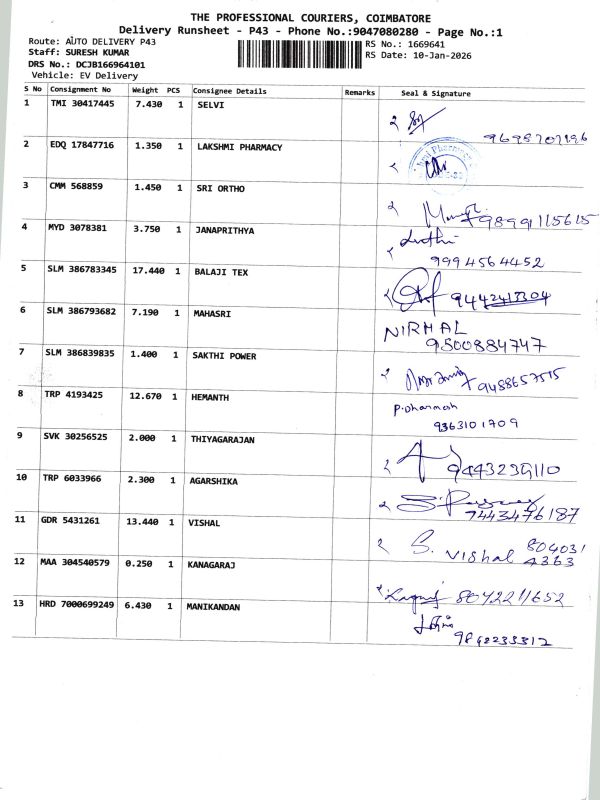 THE PROFESSIONAL COURIERS, COIMBATORE
Delivery Runsheet - P43 - Phone No.:9047080280 - Page No.:1
Route: AUTO DELIVERY P43
RS No.: 1669641
Staff: SURESH KUMAR
RS Date: 10-Jan-2026
DRS No.: DCJB166964101
Vehicle: EV Delivery
S No Consignment No Weight PCS Consignee Details Remarks Seal & Signature
1 TMI 30417445 7.430 1 SELVI
2 EDQ 17847716 1.350 1 LAKSHMI PHARMACY
3 CMM 568859 1.450 1 SRI ORTHO
98991115615
4 MYD 3078381 3.750 1 JANAPRITHYA
9994564452
5 SLM 386783345 17.440 1 BALAJI TEX
6 SLM 386793682 7.190 1 MAHASRI NIRMAL
9800884747
7 SLM 386839835 1.400 1 SAKTHI POWER
9488657515
8 TRP 4193425 12.670 1 HEMANTH P.Dharmesh
9363101709
9 SVK 30256525 2.000 1 THIYAGARAJAN
9443239110
10 TRP 6033966 2.300 1 AGARSHIKA
7443476187
11 GDR 5431261 13.440 1 VISHAL S. Vishal 804031
4363
12 MAA 304540579 0.250 1 KANAGARAJ
8042211652
13 HRD 7000699249 6.430 1 MANIKANDAN
9842233312